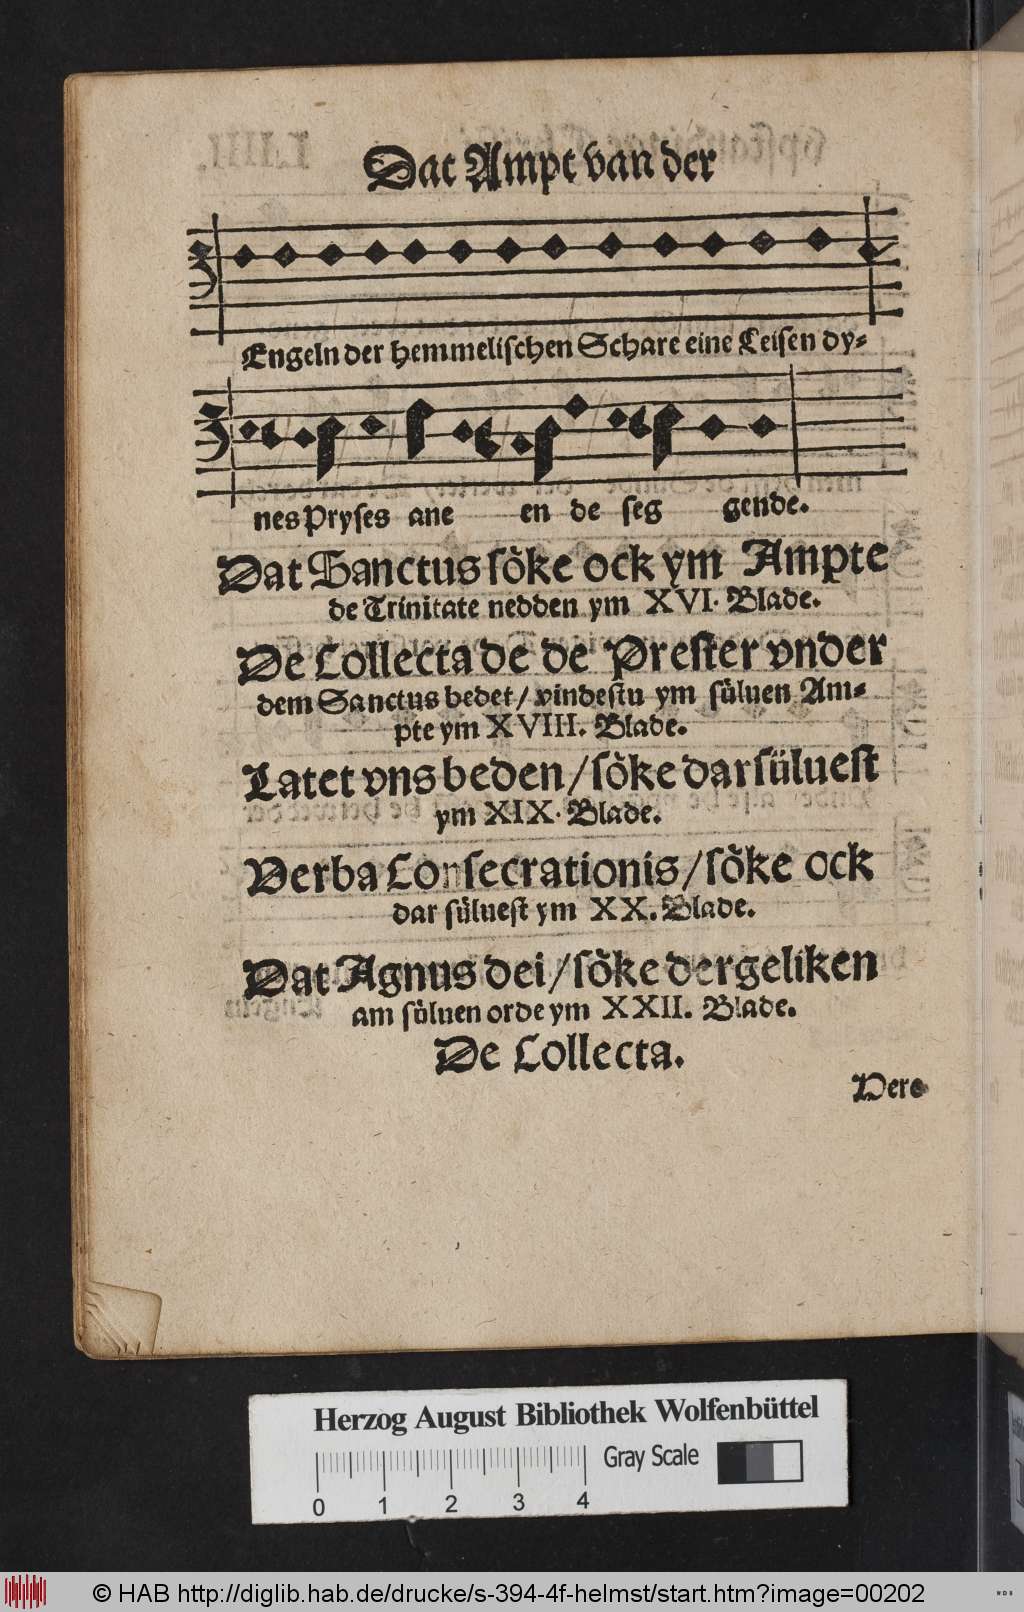 Dat Ampt van der
Engeln der hemmelischen Schare eine Leisen dy⸗
nes Pryses ane en de seg gende.
Dat Sanctus söke ock ym Ampte
de Trinitate nedden ym XVI. Blade.
De Collecta de de Prester vnder
dem Sanctus bedet / vindestu ym süluen Am⸗
pte ym XVIII. Blade.
Latet vns beden / söke darsüluest
ym XIX. Blade.
Verba Consecrationis / söke ock
dar süluest ym XX. Blade.
Dat Agnus dei / söke dergeliken
am süluen orde ym XXII. Blade.
De Collecta.
Vere
Herzog August Bibliothek Wolfenbüttel
Gray Scale
0 1 2 3 4
© HAB http://diglib.hab.de/drucke/s-394-4f-helmst/start.htm?image=00202